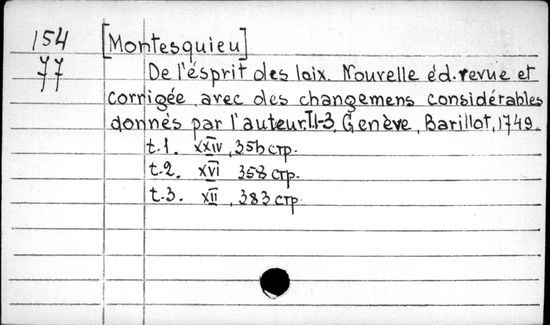 154 [Montesquieu]
77 De l'ésprit des loix. Nouvelle éd. revue et
corrigée avec des changemens considérables
donnés par l'auteur. T.1-3, Genève, Barillot, 1749.
t.1. XXIV, 356 стр.
t.2. XVI 358 стр.
t.3. XII, 383 стр.